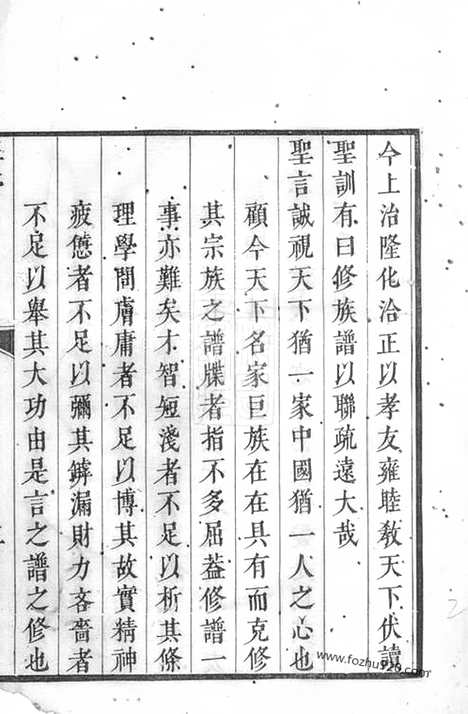 今上治隆化洽正以孝友雍睦敎天下伏讀
聖訓有曰修族譜以聯疏遠大哉
聖言誠視天下猶一家中國猶一人之心也
顧今天下名家巨族在在具有而克修
其宗族之譜牒者指不多屈葢修譜一
事亦難矣才智短淺者不足以析其條
理學問膚庸者不足以博其故實精神
疲憊者不足以彌其罅漏財力吝嗇者
不足以舉其大功由是言之譜之修也
www.fozhu920.com